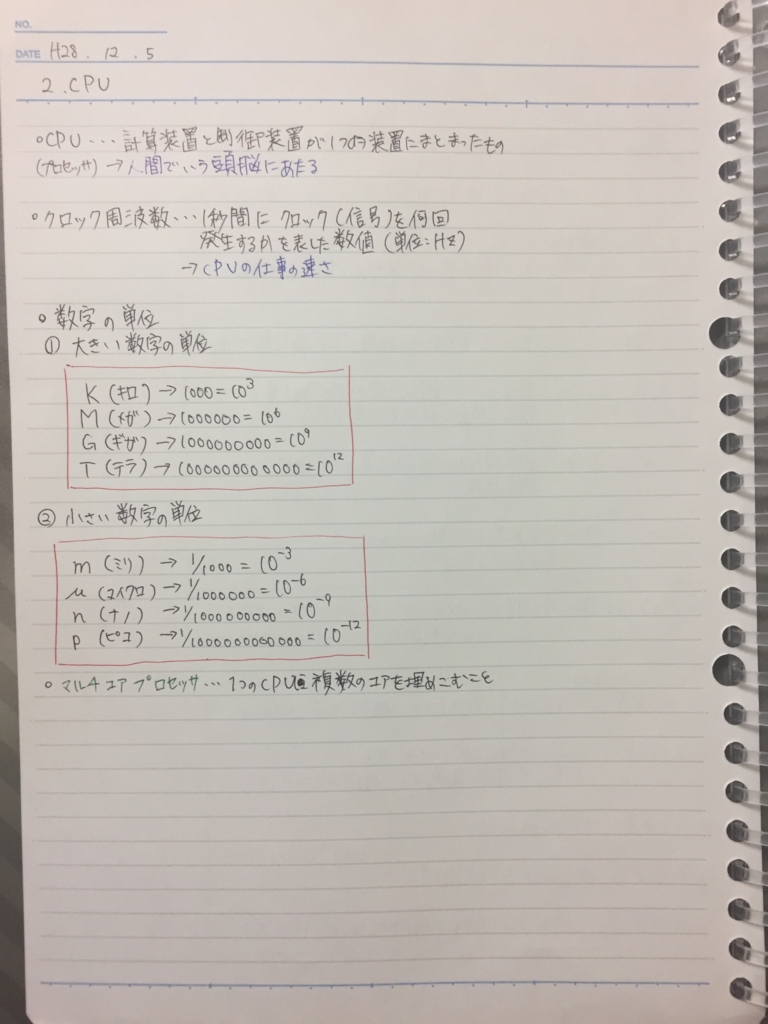 NO.
DATE H28.12.5
2.CPU
○CPU...計算装置と制御装置が1つの装置にまとまったもの
(プロセッサ)→人間でいう頭脳にあたる
○クロック周波数...1秒間にクロック(信号)を何回
発生するかを表した数値(単位:Hz)
→CPUの仕事の速さ
○数字の単位
①大きい数字の単位
K(キロ)→1000=10³
M(メガ)→1000000=10⁶
G(ギガ)→1000000000=10⁹
T(テラ)→1000000000000=10¹²
②小さい数字の単位
m(ミリ)→1/1000=10⁻³
μ(マイクロ)→1/1000000=10⁻⁶
n(ナノ)→1/1000000000=10⁻⁹
p(ピコ)→1/1000000000000=10⁻¹²
○マルチコアプロセッサ...1つのCPUに複数のコアを埋めこむこと